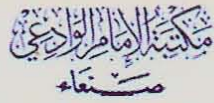 مَكتَبَةُ الإِمَامِ الوَادِعِي
صَنعَاء